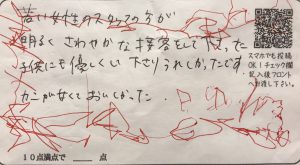 若い女性のスタッフの方が
明るく さわやかな 接客をして下さった
子供にも優しくい下さりうれしかったです
カニが少なくておいしかった.
スマホでも投稿
OK!チェック欄
記入後フロント
へお渡し下さい。
10点満点で ____ 点